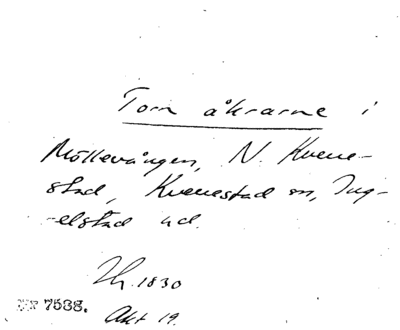 Torn åkrarne i
Möllevången, N. Kvene-
stad, Kvenestad sn, Ing-
-elstad hd.
1830
7538.
Akt 19.